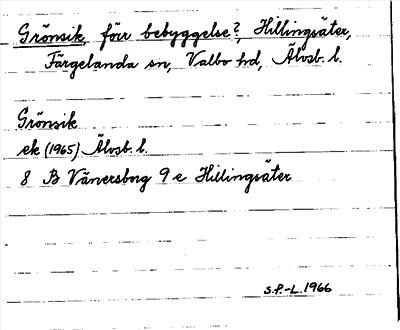 Grönsik, förr bebyggelse?, Hillingsäter,
Färgelanda sn, Valbo hd, Älvsb. l.
Grönsik
ek (1965) Älvsb. l.
8 B Vänersborg 9 e Hillingsäter
S.P.-L. 1966